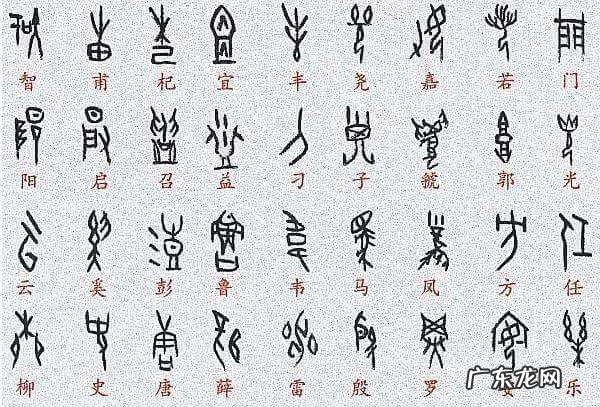 智 甫 杞 宜 丰 尧 嘉 若 门
阳 启 召 益 刁 子 虢 郭 光
云 奚 彭 鲁 韦 马 凤 方 任
柳 史 唐 薛 雷 殷 罗 安 乐
广东龙网